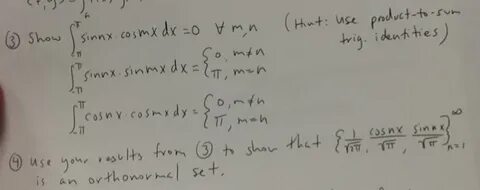 ③ Show ∫_{-π}^{π} sinnx · cosmx dx = 0 ∀ m,n (Hint: use product-to-sum trig. identities)
∫_{-π}^{π} sinnx · sinmx dx = { 0, m≠n
π, m=n
∫_{-π}^{π} cosnx · cosmx dx = { 0, m≠n
π, m=n
④ Use your results from ③ to show that { 1/√2π, cosnx/√π, sinnx/√π }_{n=1}^{∞}
is an orthonormal set.